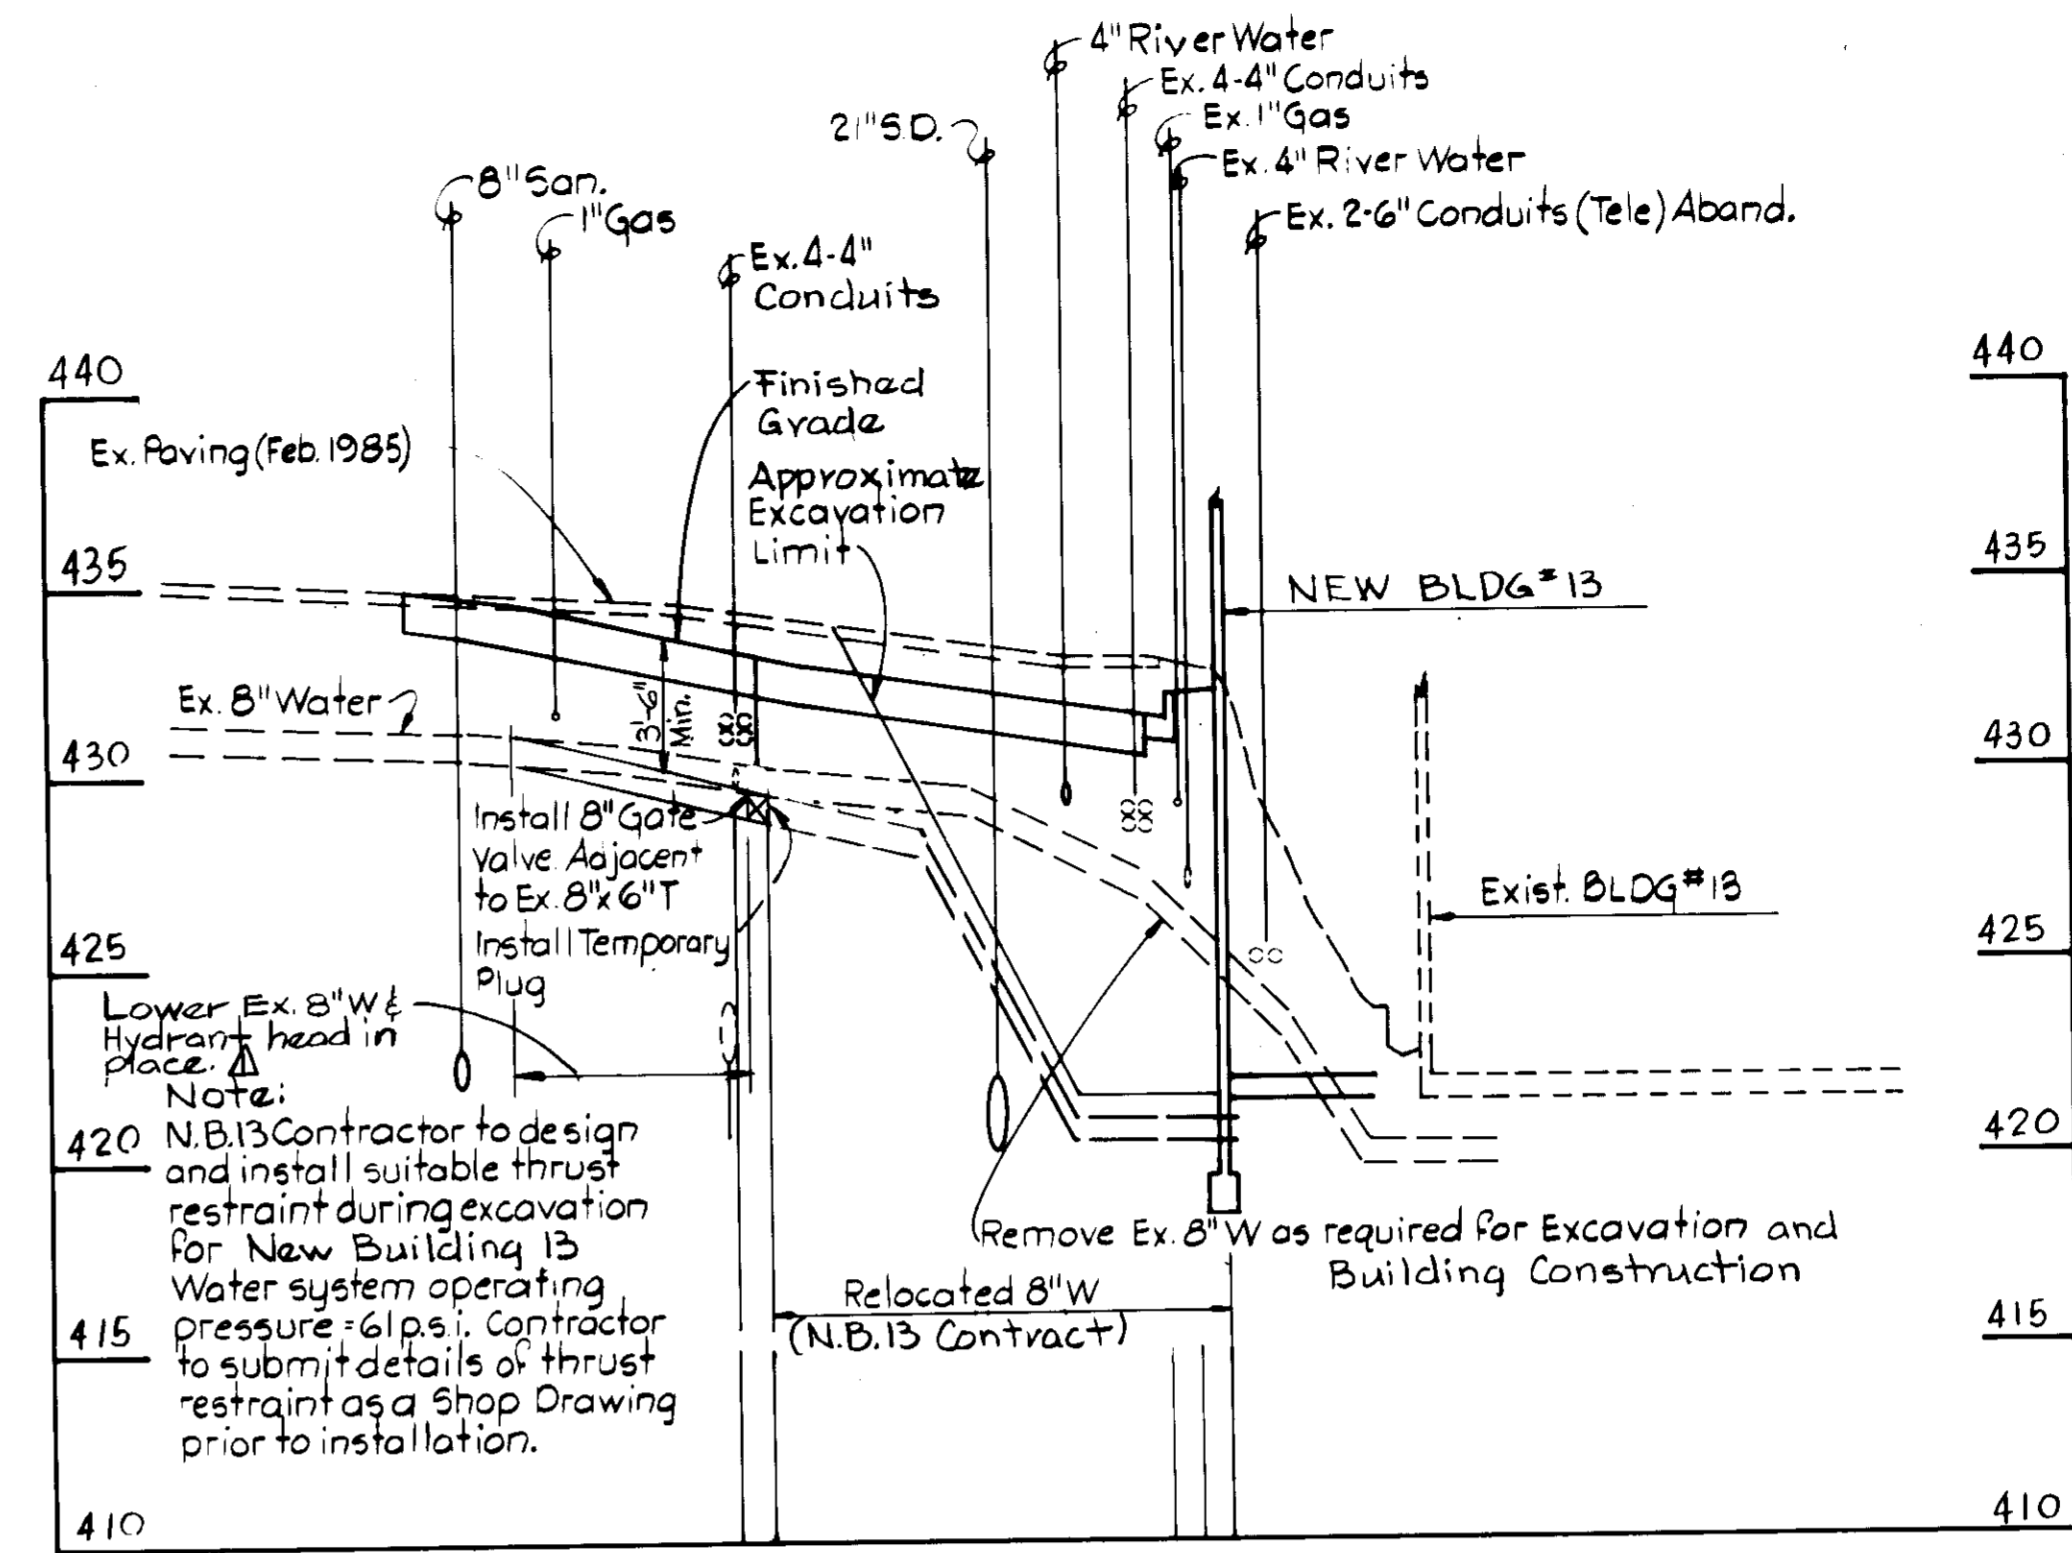 4" River Water
Ex. 4-4" Conduits
21" S.D.
Ex. 1" Gas
Ex. 4" River Water
8" San.
1" Gas
Ex. 2-6" Conduits (Tele) Aband.
Ex. 4-4"
Conduits
440
440
Finished
Grade
Ex. Paving (Feb. 1985)
Approximate
Excavation
Limit
435
435
NEW BLDG #13
Ex. 8" Water
3'-6"
Min.
430
430
Install 8" Gate
Valve Adjacent
to Ex. 8"x 6" T
Exist. BLDG #13
Install Temporary
Plug
425
425
Lower Ex. 8" W &
Hydrant head in
place. 1
Note:
420
420
N.B.13 Contractor to design
and install suitable thrust
restraint during excavation
for New Building 13
Water system operating
pressure = 61 p.s.i. Contractor
to submit details of thrust
restraint as a Shop Drawing
prior to installation.
Remove Ex. 8" W as required for Excavation and
Building Construction
Relocated 8" W
(N.B.13 Contract)
415
415
410
410